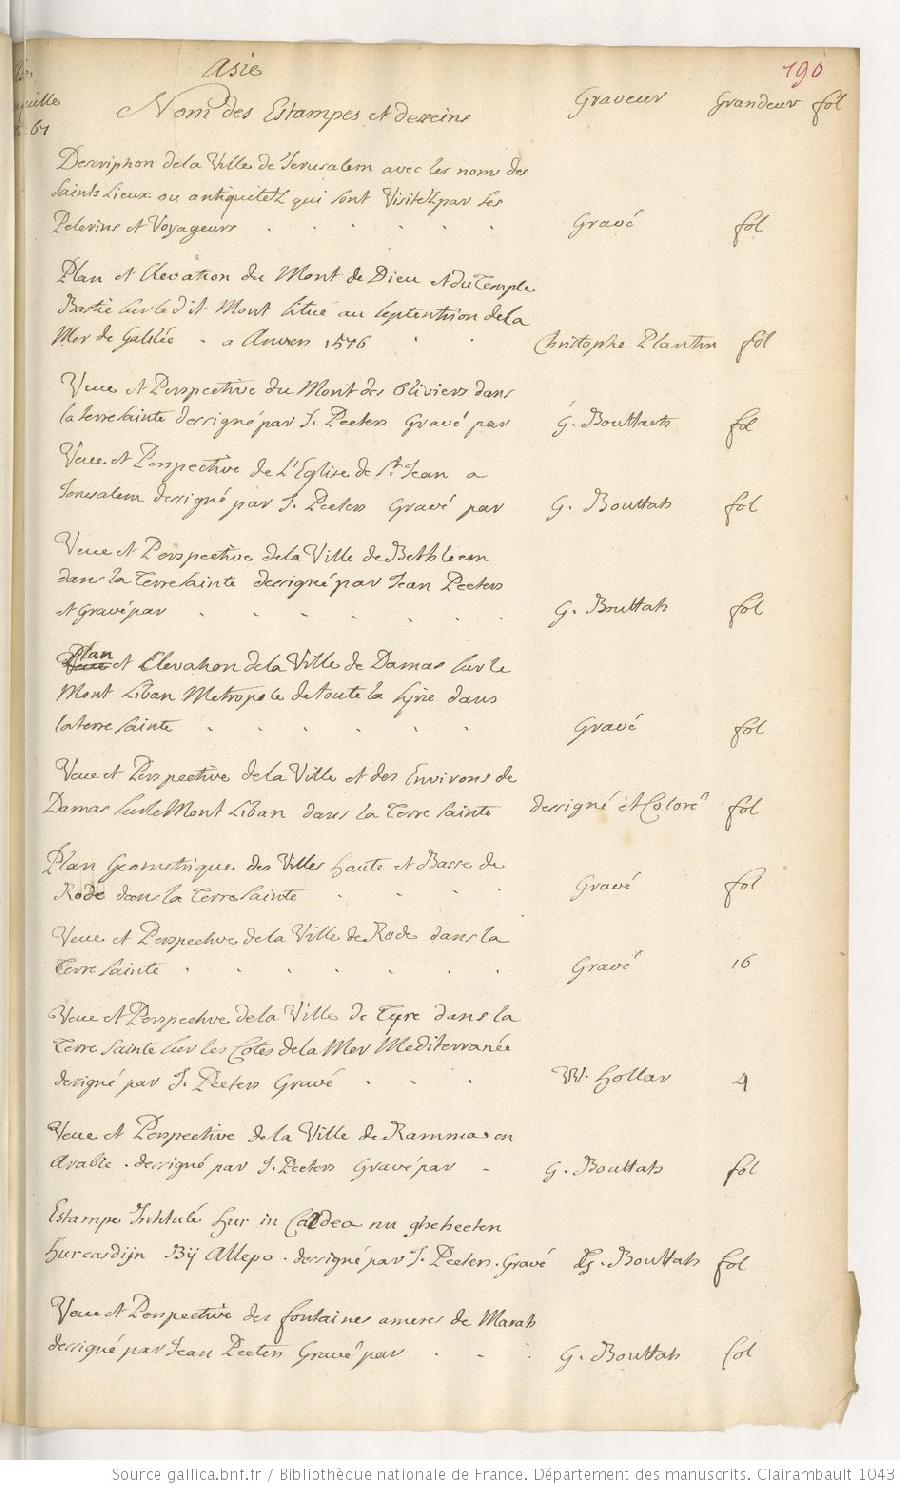 Asie
190
Nom des Estampes et desseins Graveur Grandeur fol
Description de la Ville de Jerusalem avec les noms des
Saints Lieux ou antiquitéz qui sont Visitéz par les
Pelerins et Voyageurs . . . . . . Gravé fol
Plan et Elevation du Mont de Dieu et du Temple
Bastie sur le dit Mont situé au septentrion de la
Mer de Galilée . a Anvers 1576 . . Christophe Plantin fol
Veue et Perspective du Mont des Oliviers dans
la terre sainte dessigné par J. Peeters Gravé par G. Bouttats fol
Veue et Perspective de L'Eglise de St Jean a
Jerusalem dessigné par J. Peeters Gravé par G. Bouttats fol
Veue et Perspective de la Ville de Bethleem
dans la Terre Sainte dessigné par Jean Peeters
et Gravé par . . . . . . G. Bouttats fol
Plan
Veue et Elevation de la Ville de Damas sur le
Mont Liban Metropole de toute la Syrie dans
la terre sainte . . . . . . Gravé fol
Veue et Perspective de la Ville et des Environs de
Damas sur le Mont Liban dans la Terre Sainte dessigné et Coloré fol
Plan Geometrique des Villes haute et Basse de
Rode dans la Terre Sainte . . . . Gravé fol
Veue et Perspective de la Ville de Rode dans la
Terre Sainte . . . . . . . Gravé 16
Veue et Perspective de la Ville de Tyre dans la
Terre Sainte sur les Cotes de la Mer Mediterranée
dessigné par J. Peeters Gravé . . . W. Hollar 4
Veue et Perspective de la Ville de Rammas en
Arabie . dessigné par J. Peeters Gravé par . G. Bouttats fol
Estampe Intitulé hur in Caldea nu gheheeten
hurcasdijn Bij Allepo . dessigné par J. Peeters . Gravé G. Bouttats fol
Veue et Perspective des fontaines ameres de Marah
dessigné par Jean Peeters Gravé par . . . G. Bouttats fol
Source gallica.bnf.fr / Bibliothèque nationale de France. Département des manuscrits. Clairambault 1043